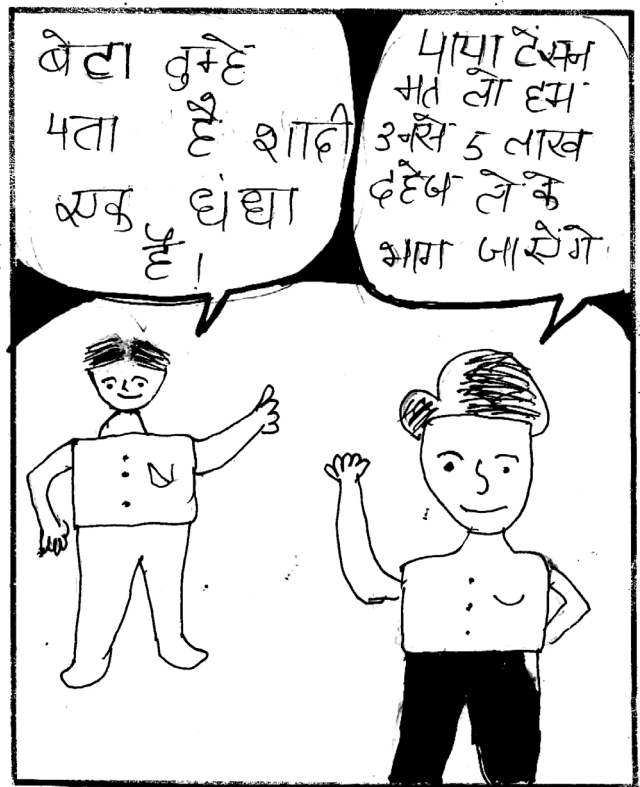 बेटा तुम्हे
पता है शादी
एक धंधा
है।
पापा टेंसन
मत लो हम
उनसे 5 लाख
दहेज ले के
भाग जायेंगे